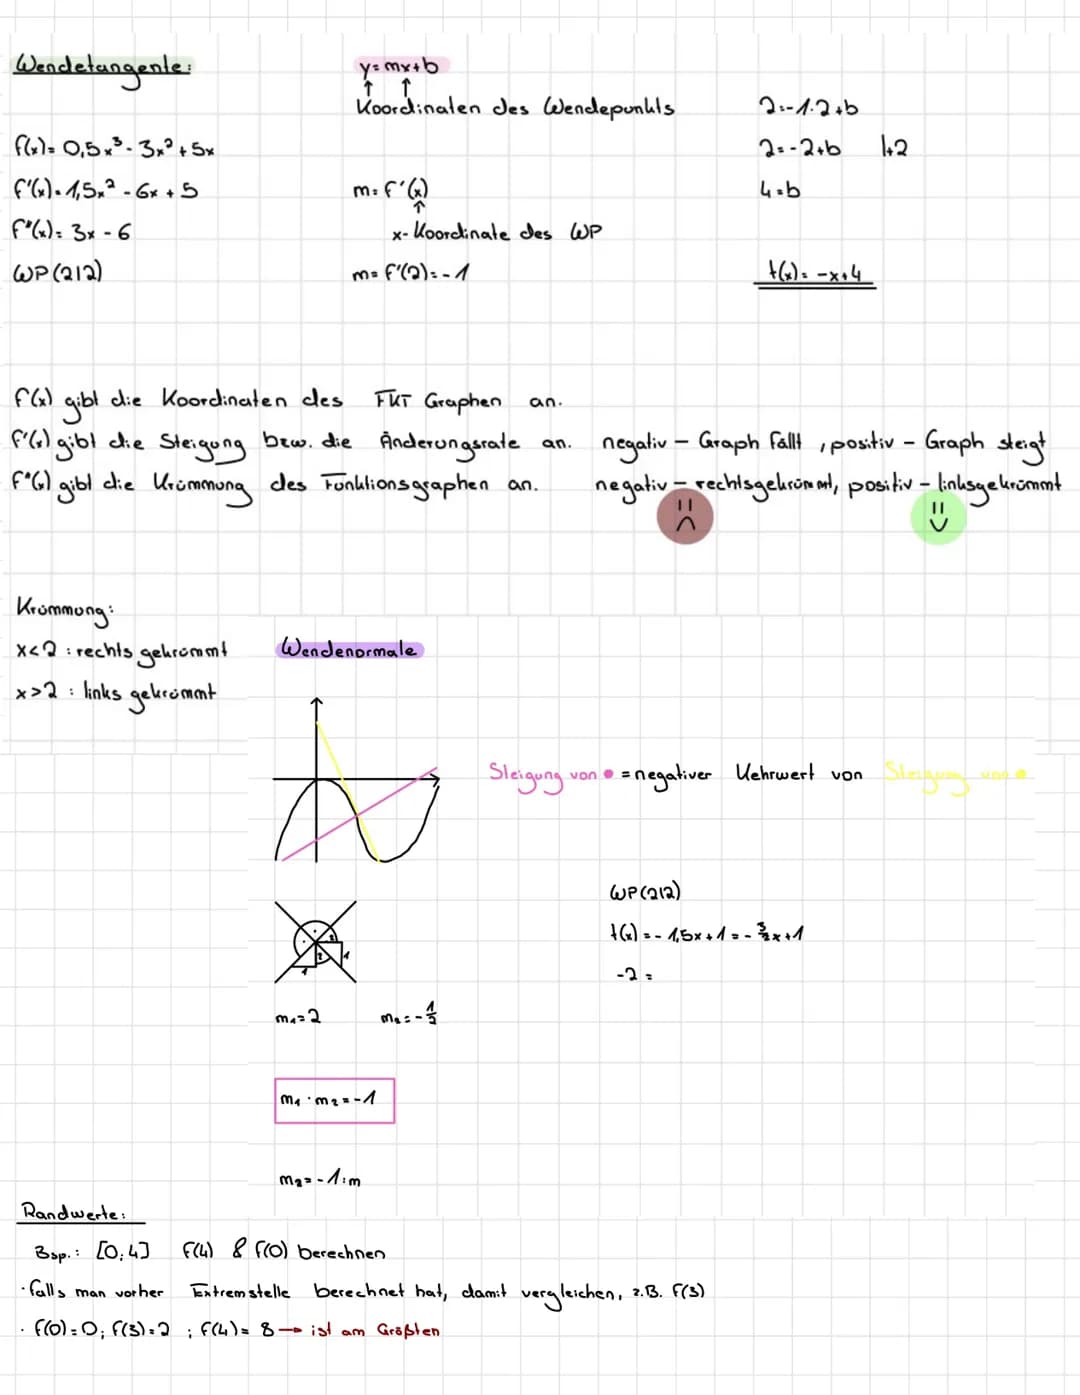 Wendetangente:
y=mx+b
Koordinaten des Wendepunkts
f(x)= 0,5x³ - 3x² + 5x
f'(x)= 1,5x² - 6x + 5
f"(x)= 3x - 6
WP(2|2)
m= f'(x)
x- Koordinate des WP
m= f'(2)= -1
2=-1·2+b
2=-2+b |+2
4=b
t(x)= -x+4
f(x) gibt die Koordinaten des FKT Graphen an.
f'(x) gibt die Steigung bzw. die Änderungsrate an. negativ - Graph fällt, positiv - Graph steigt
f"(x) gibt die Krümmung des Funktionsgraphen an. negativ - rechtsgekrümmt, positiv - linksgekrümmt
Krümmung:
x<2 : rechts gekrümmt
x>2 : links gekrümmt
Wendenormale
Steigung von • = negativer Kehrwert von Steigung von •
WP(2|2)
t(x) = -1,5x+1 = -3/2x+1
-2 =
2
1
2
1
m₁=2 m₂=-1/2
m₁·m₂=-1
m₂=-1:m
Randwerte:
Bsp.: [0;4] f(4) & f(0) berechnen
· falls man vorher Extremstelle berechnet hat, damit vergleichen, z.B. f(3)
· f(0)=0; f(3)=2 ; f(4)= 8 → ist am Größten